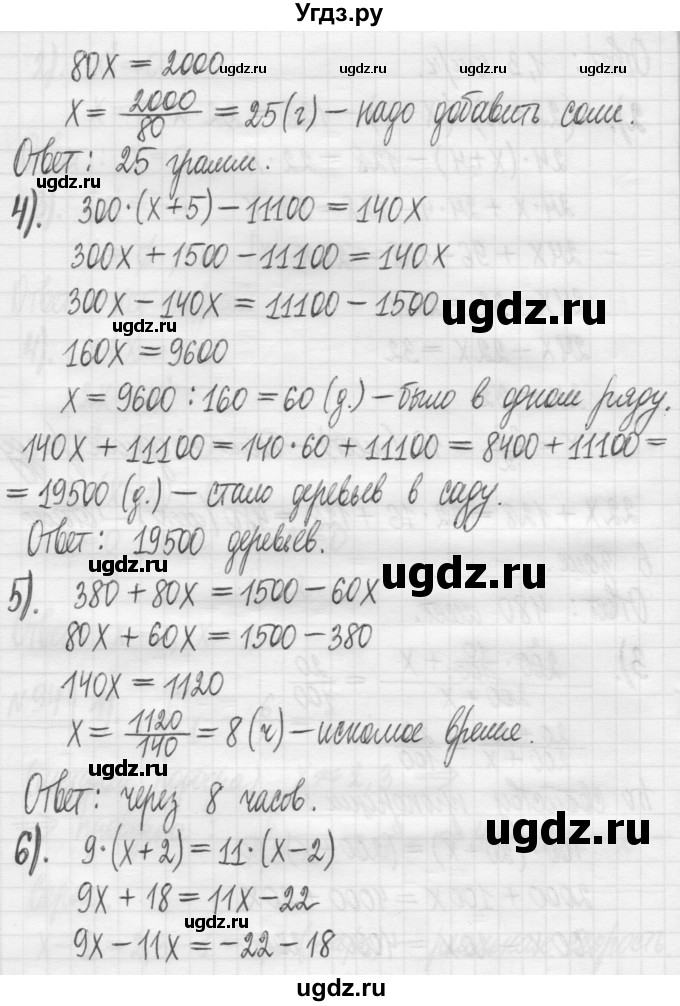 Угдз.ру
80x = 2000
x = 2000/80 = 25(г) – надо добавить соли.
Ответ: 25 грамм.
4). 300·(x+5) – 11100 = 140x
300x + 1500 – 11100 = 140x
300x – 140x = 11100 – 1500
160x = 9600
x = 9600 : 160 = 60 (д.) – было в одном ряду.
140x + 11100 = 140·60 + 11100 = 8400 + 11100 =
= 19500 (д.) – стало деревьев в саду.
Ответ: 19500 деревьев.
5). 380 + 80x = 1500 – 60x
80x + 60x = 1500 – 380
140x = 1120
x = 1120/140 = 8 (ч) – искомое время.
Ответ: через 8 часов.
6). 9·(x+2) = 11·(x–2)
9x + 18 = 11x – 22
9x – 11x = –22 – 18
ugdz.ru
ugdz.ru
ugdz.ru
ugdz.ru
ugdz.ru
ugdz.ru
ugdz.ru
ugdz.ru
ugdz.ru
ugdz.ru